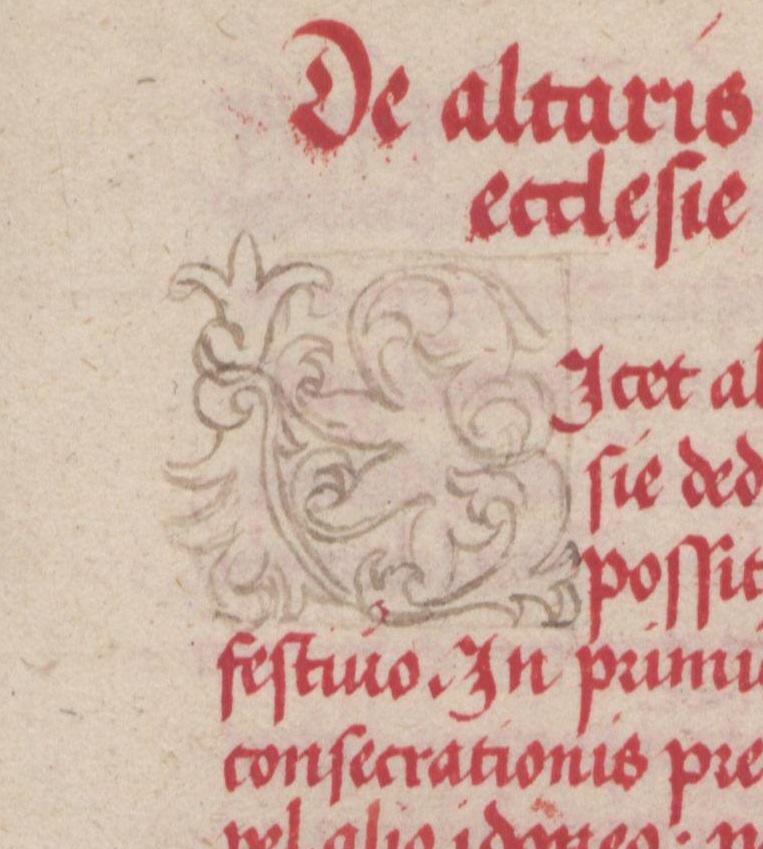 De altaris
ecclesie
Icet al
sie ded
possit
festiuo. In primi
consecrationis pre
vel alio idoneo: n